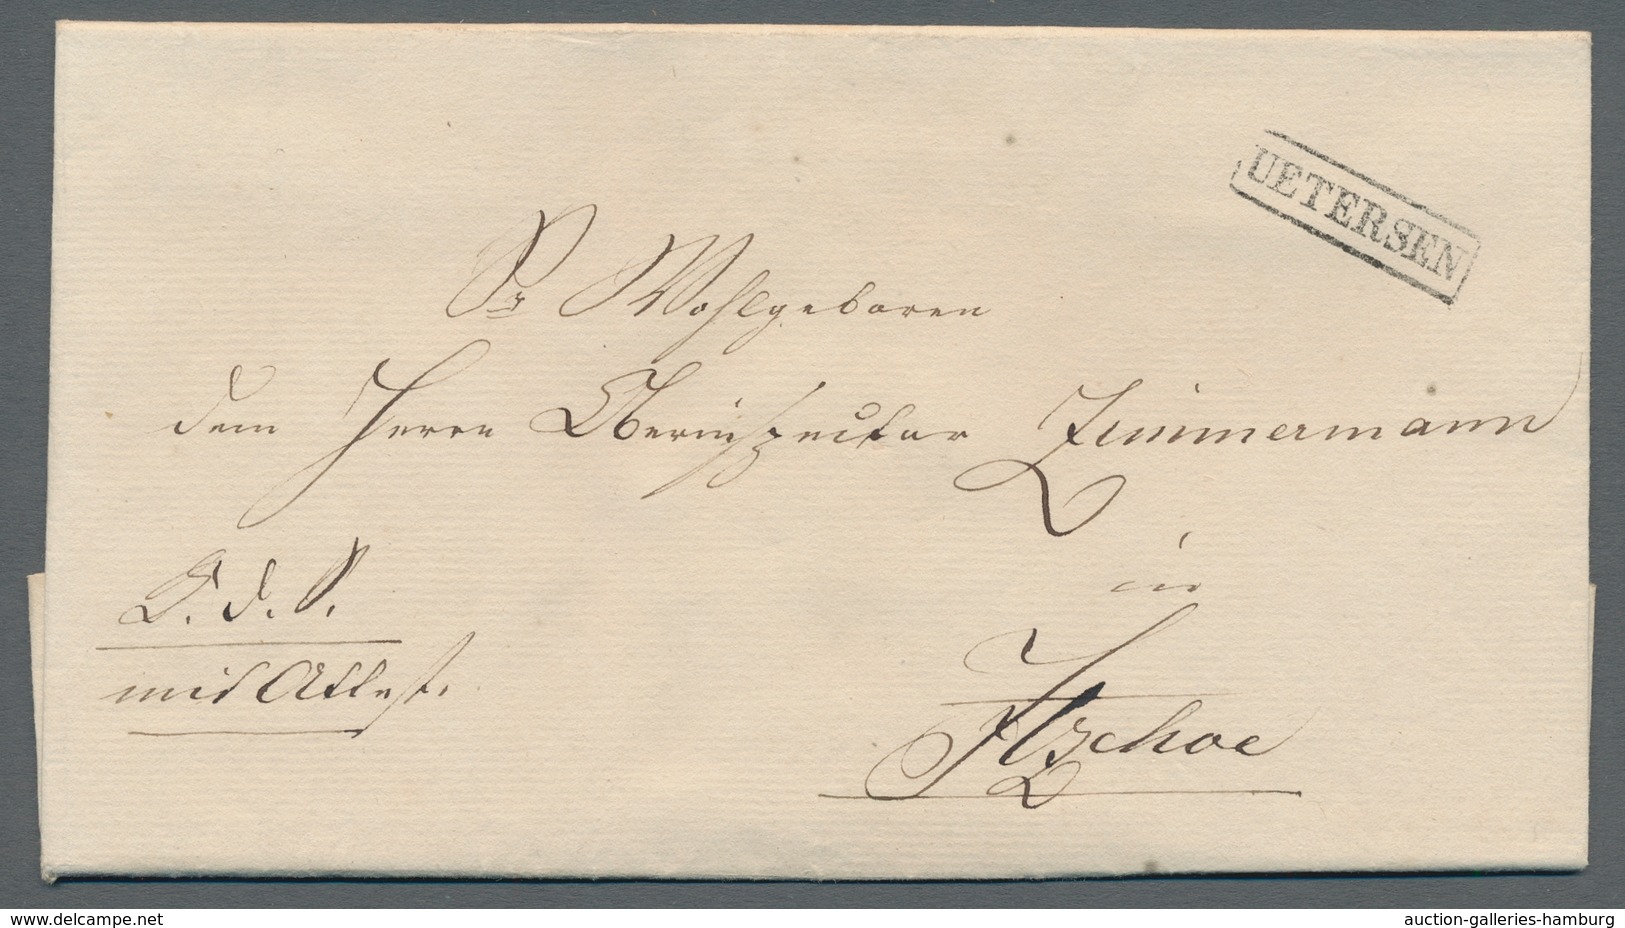 UETERSEN
Sr Wohlgeboren
dem Herrn Oberinspector Zimmermann
in
Itzehoe
K. d. S.
mit Attest.
www.delcampe.net
auction-galleries-hamburg